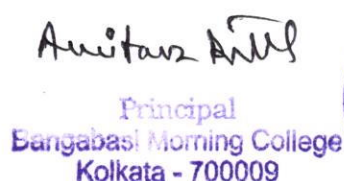 Amitava
Principal
Bangabasi Morning College
Kolkata - 700009